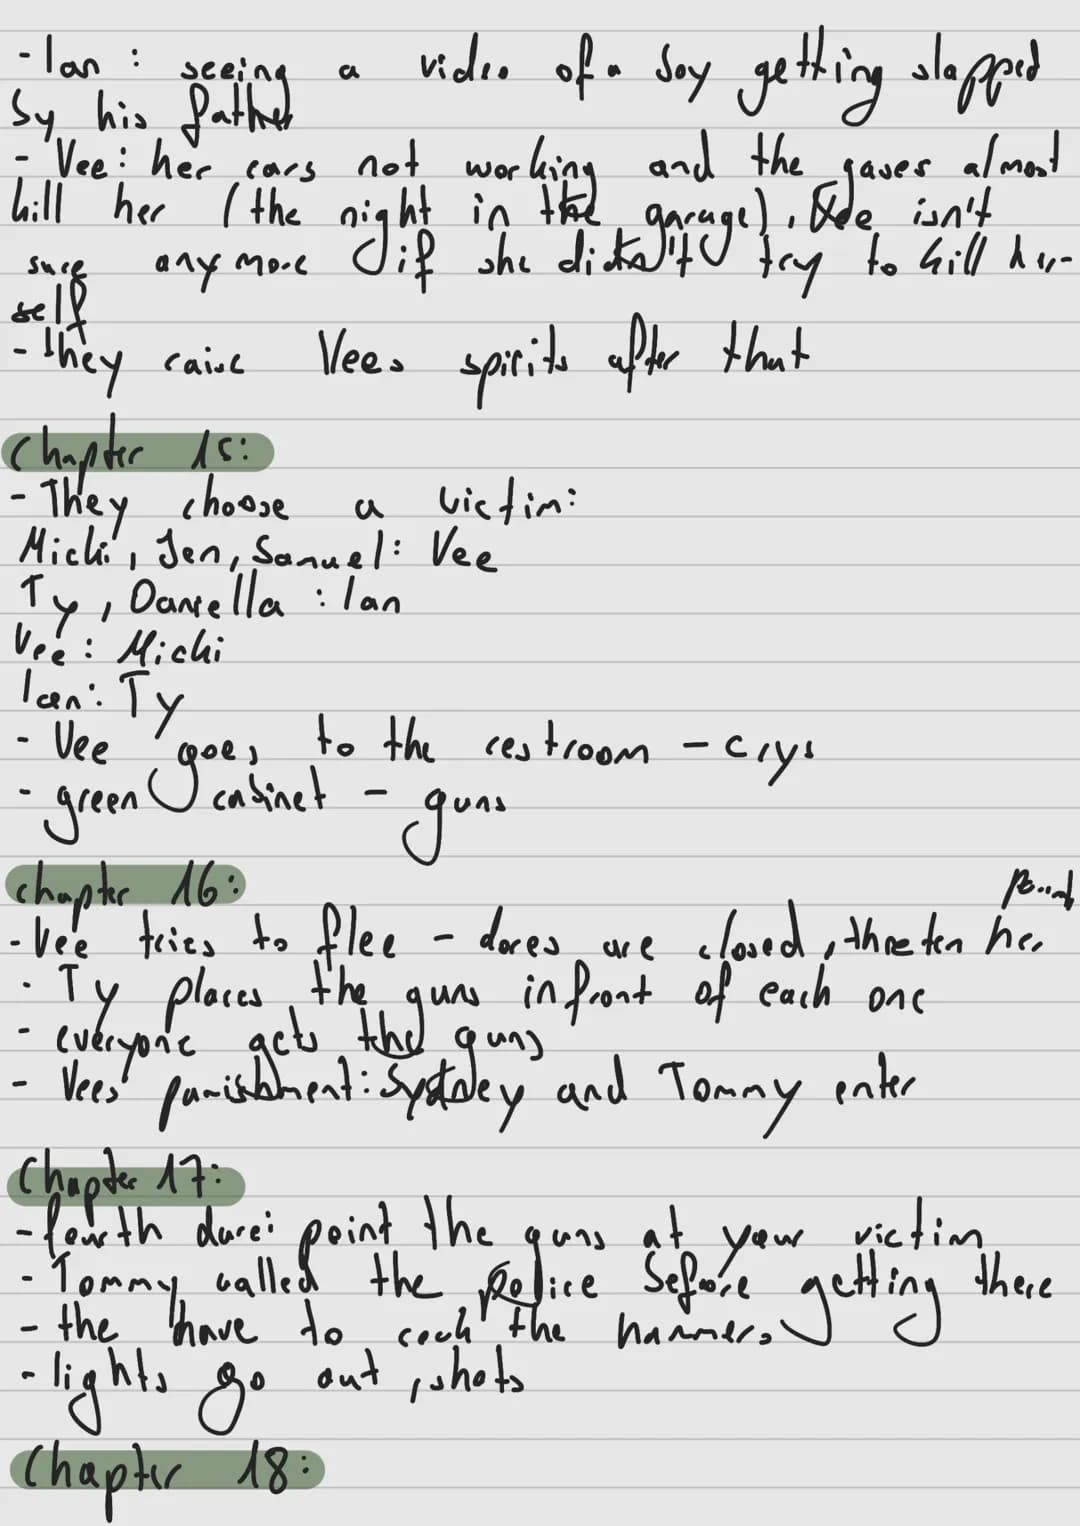 - Ian : seeing a video of a boy getting slapped
by his father
- Vee: her cars not working and the gases almost
kill her (the night in the garage), Vee isn't
sure anymore if she didn't try to kill her-
self
- they raise Vees spirits after that
Chapter 15:
- They choose a victim:
Micki, Jen, Samuel: Vee
Ty, Daniella : Ian
Vee: Micki
Ian: Ty
- Vee goes to the restroom - crys
- green cabinet - guns
chapter 16:
point
- Vee tries to flee - dores are closed, threten her
- Ty places the guns infront of each one
- everyone gets the guns
- Vees punishment: Sydney and Tommy enter
Chapter 17:
- fourth dare: point the guns at your victim
- Tommy called the police before getting there
- the have to cock the hammers
- lights go out, shots
Chapter 18: